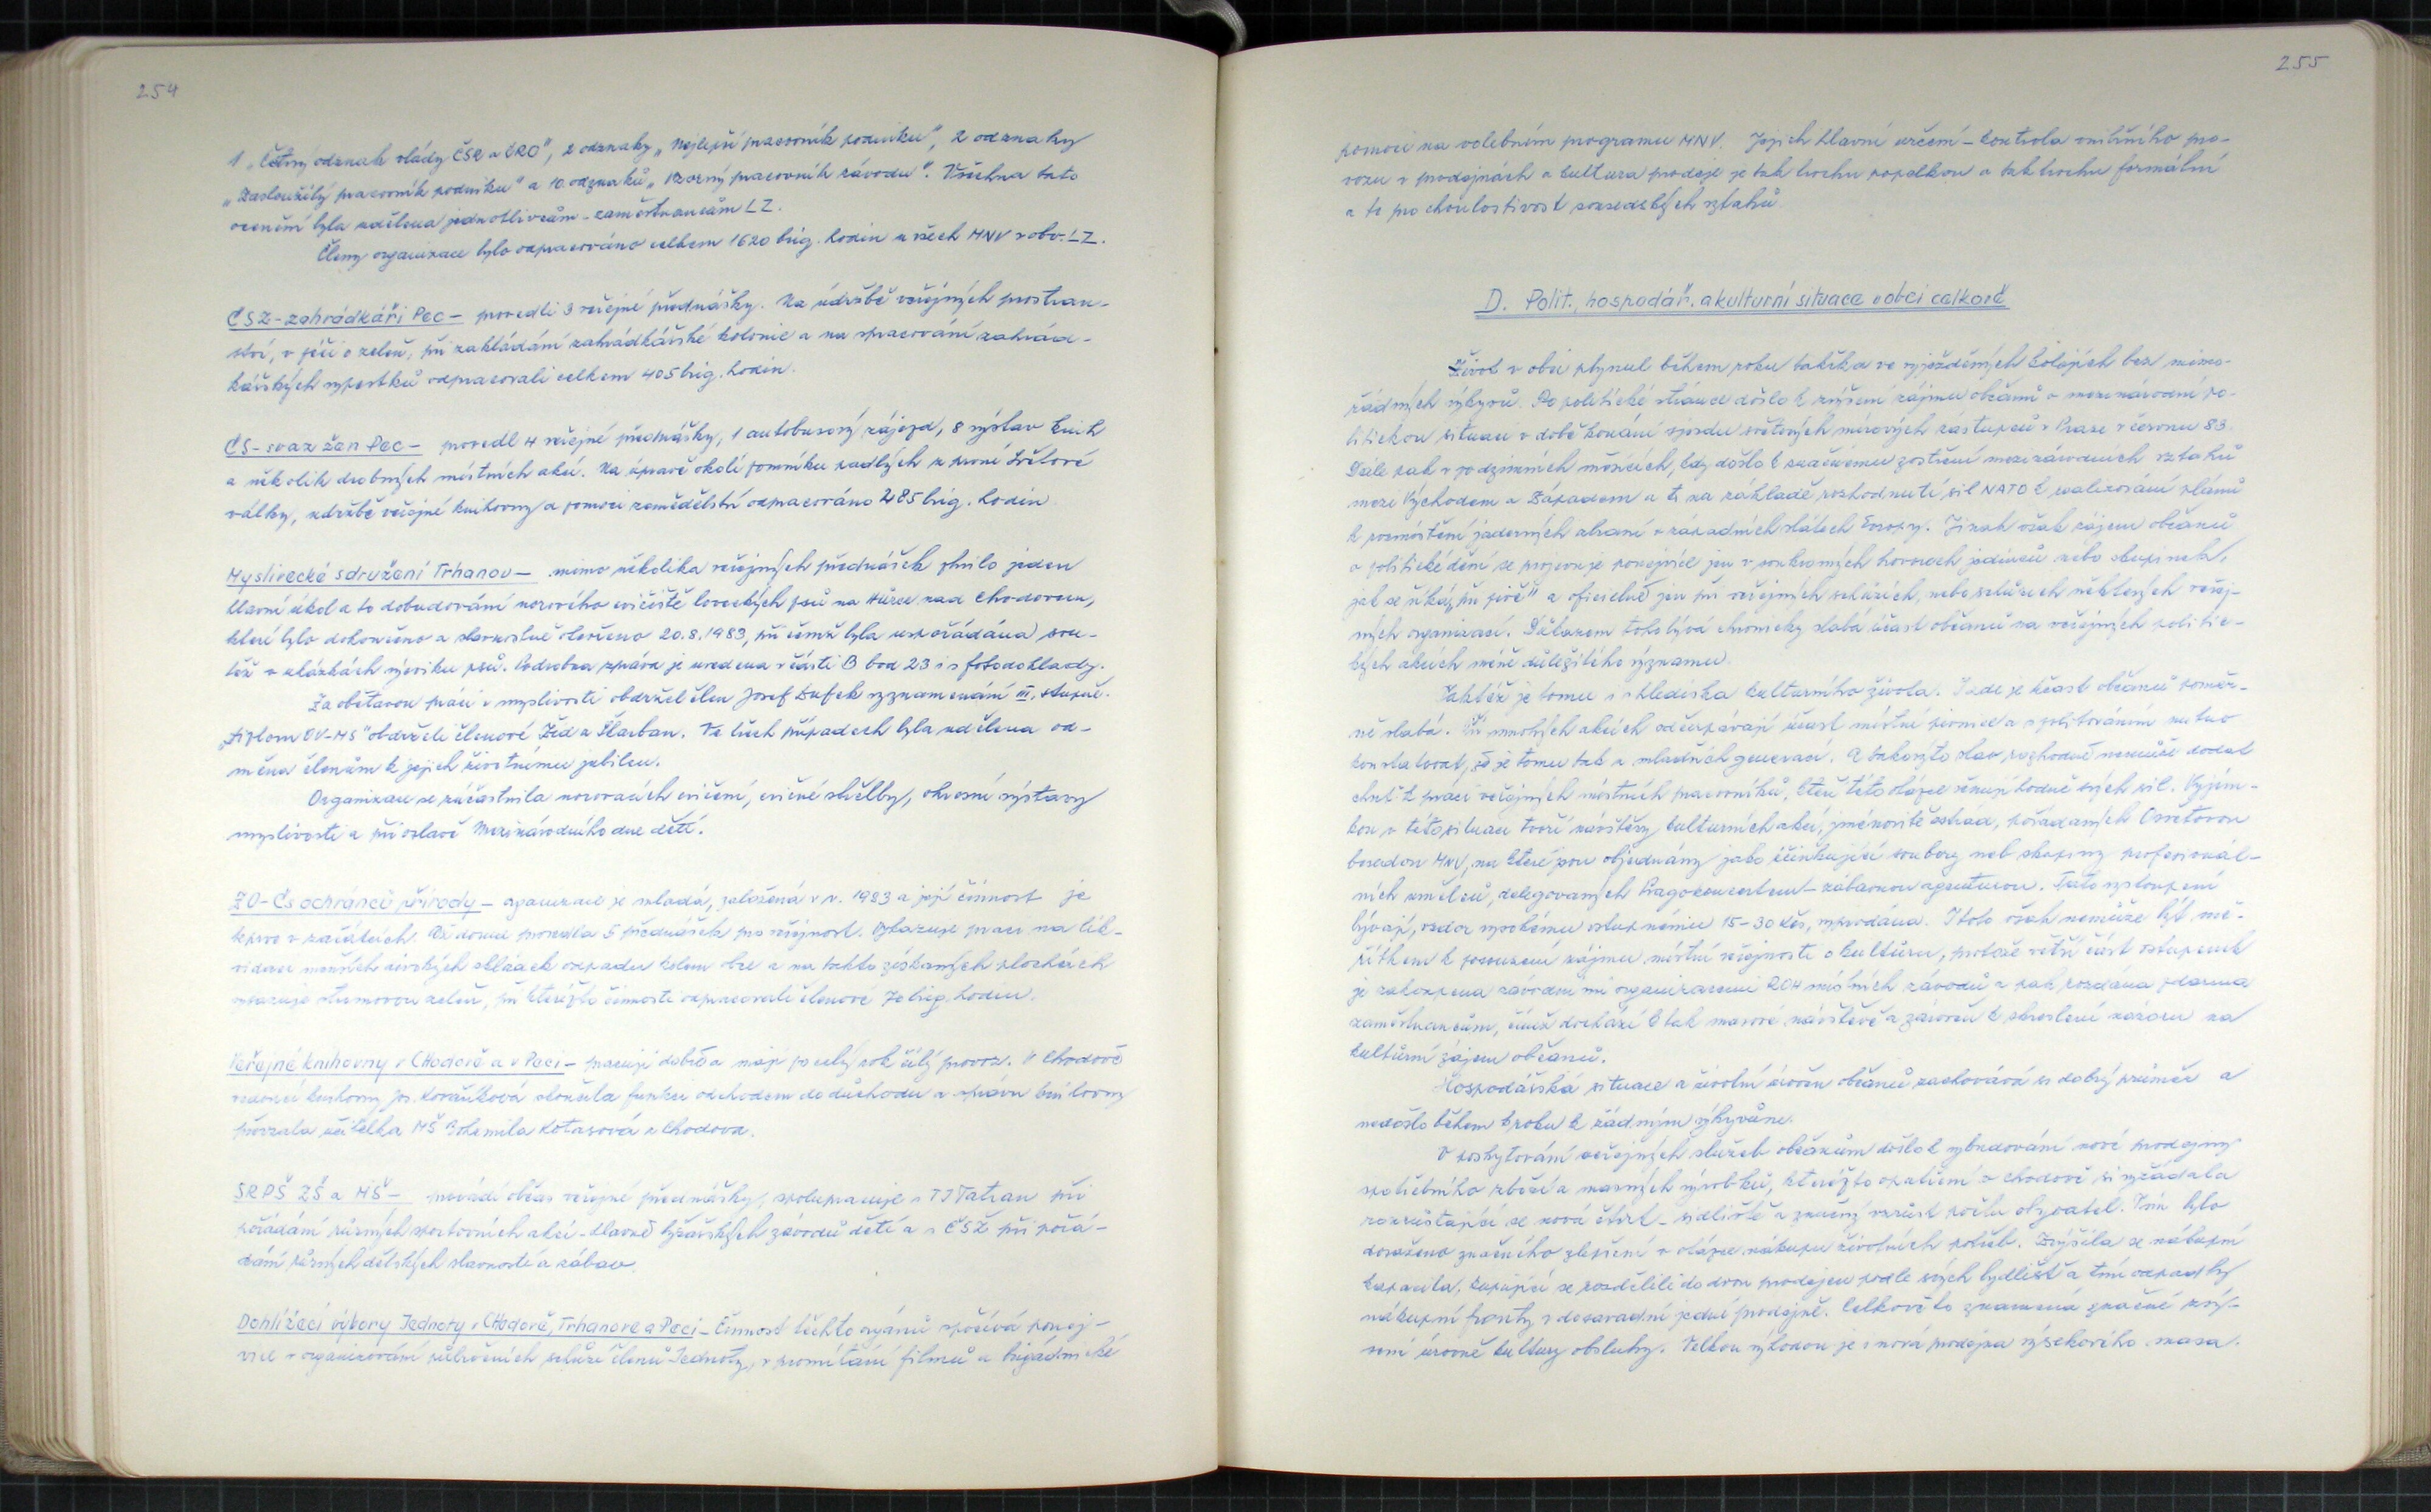 254
1 „Čestný odznak vlády ČSR a ČRO", 2 odznaky „Nejlepší pracovník podniku", 2 odznaky
„Zasloužilý pracovník podniku" a 10 odznaků „Vzorný pracovník závodu". Všechna tato
ocenění byla udělena jednotlivcům - zaměstnancům LZ.
Členy organizace bylo odpracováno celkem 1620 brig. hodin u všech MNV v obv. LZ.
ČSZ - zahrádkáři Pec - provedli 3 veřejné přednášky. Na údržbě veřejných prostran-
ství, v péči o zeleň, při zakládání zahrádkářské kolonie a na zpracování zahrád-
kářských výpěstků odpracovali celkem 405 brig. hodin.
ČS - svaz žen Pec - provedl 4 veřejné přednášky, 1 autobusový zájezd, 8 výstav knih
a několik drobných místních akcí. Na úpravě okolí pomníku padlých z první světové
války, údržbě veřejné knihovny a pomoci zemědělství odpracováno 285 brig. hodin
Myslivecké sdružení Trhanov - mimo několika veřejných přednášek plnilo jeden
hlavní úkol a to dobudování norového cvičiště loveckých psů na Hůrce nad Chodovem,
které bylo dokončeno a slavnostně otevřeno 20.8.1983, při čemž byla uspořádána sou-
těž v ukázkách výcviku psů. Podrobná zpráva je uvedena v části B bod 23 i s fotodoklady.
Za obětavou práci v myslivosti obdržel člen Josef Dufek vyznamenání III. stupně.
„Diplom OV-MS" obdrželi členové Žid a Škarban. Ve všech případech byla udělena od-
měna členům k jejich životnímu jubileu.
Organizace se zúčastnila norovacích cvičení, cvičné střelby, okresní výstavy
myslivosti a při oslavě Mezinárodního dne dětí.
ZO - Čs ochránců přírody - organizace je mladá, založená v r. 1983 a její činnost je
teprve v začátcích. Už dosud provedla 5 přednášek pro veřejnost. Vykazuje práci na lik-
vidaci menších divokých skládek odpadu kolem obce a na takto získaných plochách
vysazuje stromovou zeleň, při kteréžto činnosti odpracovali členové 70 brig. hodin.
Veřejné knihovny v Chodově a v Peci - pracují dobře a mají po celý rok čilý provoz. V Chodově
vedoucí knihovny Jos. Kovaříková skončila funkci odchodem do důchodu a správu knihovny
převzala učitelka MŠ Bohumila Kotasová z Chodova.
SRPŠ ZŠ a MŠ - provádí občas veřejné přednášky, spolupracuje s TJ Tatran při
pořádání různých sportovních akcí - hlavně lyžařských závodů dětí a s ČSŽ při pořá-
dání různých dětských slavností a zábav.
Dohlížecí výbory Jednoty v Chodově, Trhanove a Peci - Činnost těchto orgánů spočívá ponej-
více v organizování výročních schůzí členů Jednoty, v promítání filmů a brigádnické
255
pomoci na volebním programu MNV. Jejich hlavní určení - kontrola vnitřního pro-
vozu v prodejnách a kultura prodeje je tak trochu popelkou a tak trochu formální
a to pro choulostivost sousedských vztahů.
D. Polit., hospodář. a kulturní situace v obci celkově
Život v obci plynul během roku takřka ve vyježděných kolejích bez mimo-
řádných výkyvů. Po politické stránce došlo k zvýšení zájmu občanů o mezinárodní po-
litickou situaci v době konání sjezdu světových mírových zástupců v Praze v červnu 83.
Dále pak v podzimních měsících, kdy došlo k značnému zostření mezinárodních vztahů
mezi Východem a Západem a to na základě rozhodnutí sil NATO k realizování plánů
k rozmístění jaderných zbraní v západních státech Evropy. Jinak však zájem občanů
o politické dění se projevuje ponejvíce jen v soukromých hovorech jedinců nebo skupinek,
jak se říká „při pivě" a oficielně jen při veřejných schůzích, nebo schůzích některých veřej-
ných organizací. Důkazem toho bývá chronicky slabá účast občanů na veřejných politic-
kých akcích méně důležitého významu.
Taktéž je tomu i s hlediska kulturního života. I zde je účast občanů poměr-
ně slabá. Při mnohých akcích odčerpávají účast místní pivnice a s politováním nutno
konstatovat, že je tomu tak u mladších generací. A takovýto stav rozhodně nemůže dodat
chuti k práci veřejných místních pracovníků, kteří této otázce věnují hodně svých sil. Výjim-
kou v této situaci tvoří návštěvy kulturních akcí, jmenovitě estrád, pořádaných Osvětovou
besedou MNV, na které jsou objednány jako účinkující soubory neb skupiny profesionál-
ních umělců, delegovaných Pragokoncertem - zábavnou agenturou. Tato vystoupení
bývají, vzdor vysokému vstupnému 15-30 Kčs, vyprodána. Itoto však nemůže být mě-
řítkem k posouzení zájmu místní veřejnosti o kulturu, protože větší část vstupenek
je zakoupena závodními organizacemi ROH místních závodů a pak rozdána zdarma
zaměstnancům, čímž dochází k tak masové návštěvě a zároveň k zkreslení názoru na
kulturní zájem občanů.
Hospodářská situace a životní úroveň občanů zachovává si dobrý průměr a
nedošlo během roku k žádným výkyvům.
V poskytování veřejných služeb občanům došlo k vybudování nové prodejny
spotřebního zboží a masných výrobků, kteréžto opatření v Chodově si vyžádala
rozrůstající se nová čtvrt - sídliště a značný vzrůst počtu obyvatel. Tím bylo
dosaženo značného zlepšení v otázce nákupu životních potřeb. Zvýšila se nákupní
kapacita, kupující se rozdělili do dvou prodejen podle svých bydlišť a tím odpadly
nákupní fronty v dosavadní jedné prodejně. Celkově to znamená značné zvý-
šení úrovně kultury obsluhy. Velkou výhodou je i nová prodejna výsekového masa.